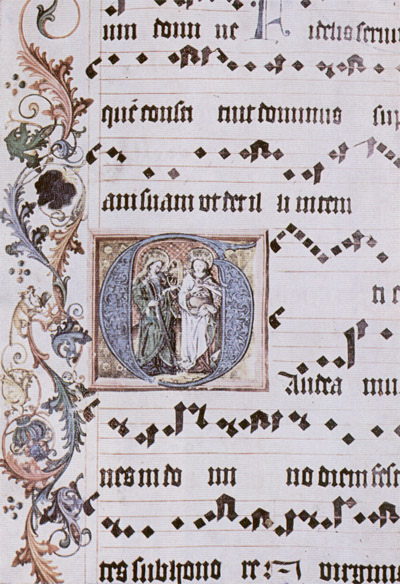 um domi ne F idelis seruu
quē consti tuit dominus sup
am suam vt det il li in tem
G Audea mu
nes in do mi no diem fest
tes sub hono re virginis